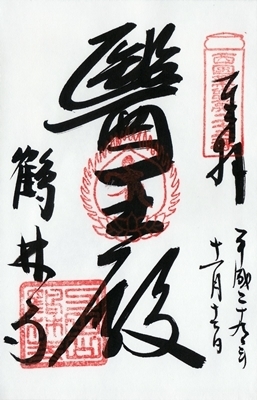 奉拝
平成二十九年
十一月十七日
醫王殿
鶴林寺